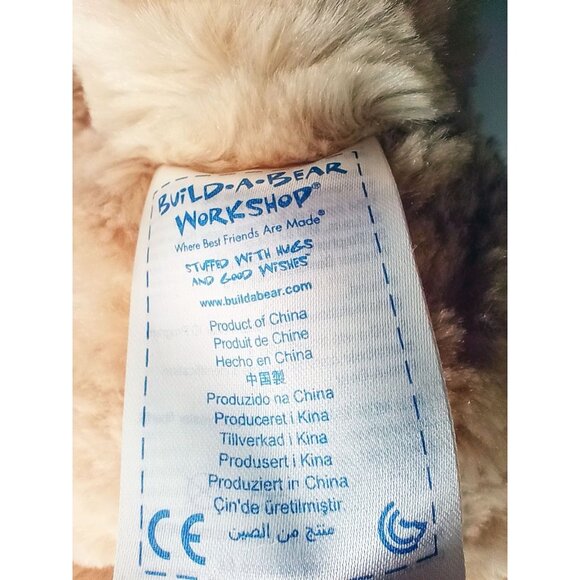 BUILD-A-BEAR
WORKSHOP®
Where Best Friends Are Made®
STUFFED WITH HUGS
AND GOOD WISHES®
www.buildabear.com
Product of China
Produit de Chine
Hecho en China
中国製
Produzido na China
Produceret i Kina
Tillverkad i Kina
Produsert i Kina
Produziert in China
Çin'de üretilmiştir
منتج من الصين
CE